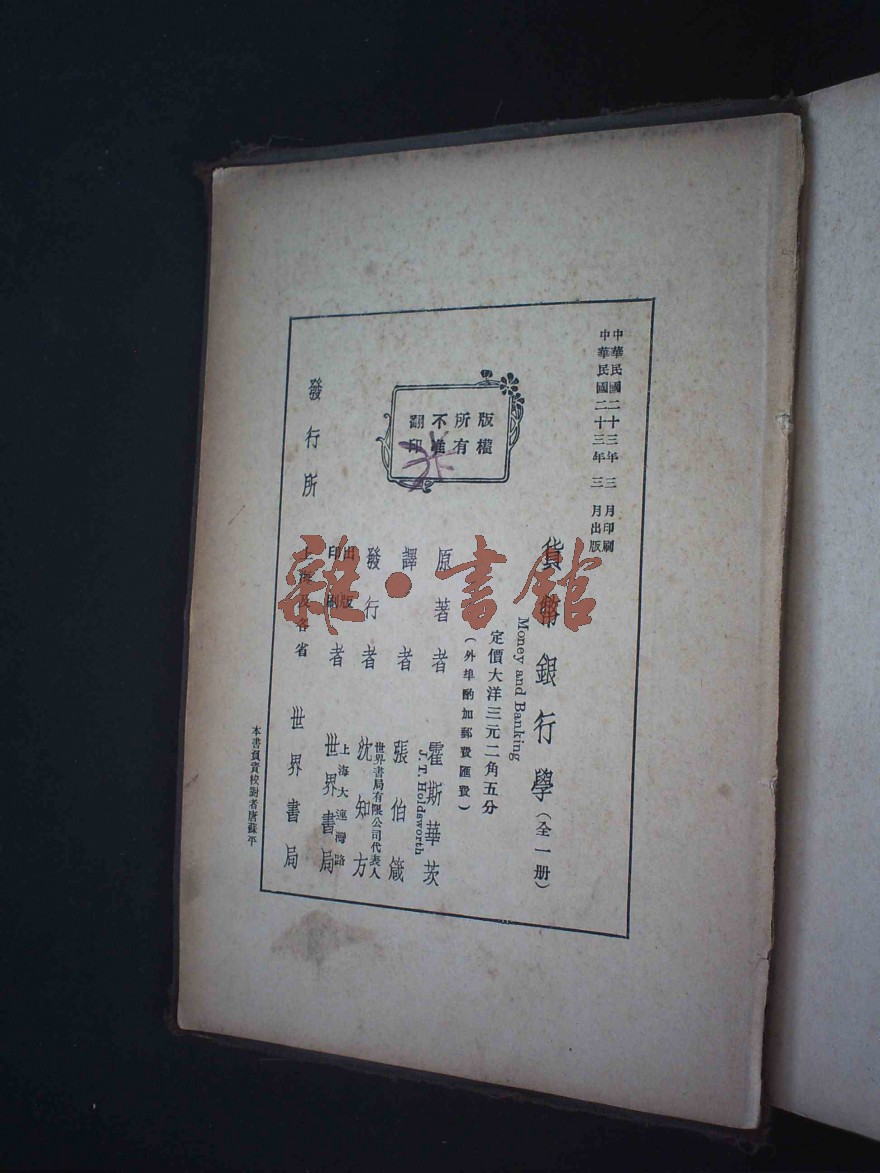 中華民國二十三年三月印刷
中華民國二十三年三月出版
貨幣銀行學（全一册）
Money and Banking
定價大洋三元二角五分
（外埠酌加郵費匯費）
原著者 霍斯華茨
J. T. Holdsworth
譯者 張伯箴
發行者 沈知方
世界書局有限公司代表人
出版印刷者 世界書局
上海大連灣路
發行所 上海及各省 世界書局
版權所有
不准翻印
本書負責校對者唐蘇平
雜·書館